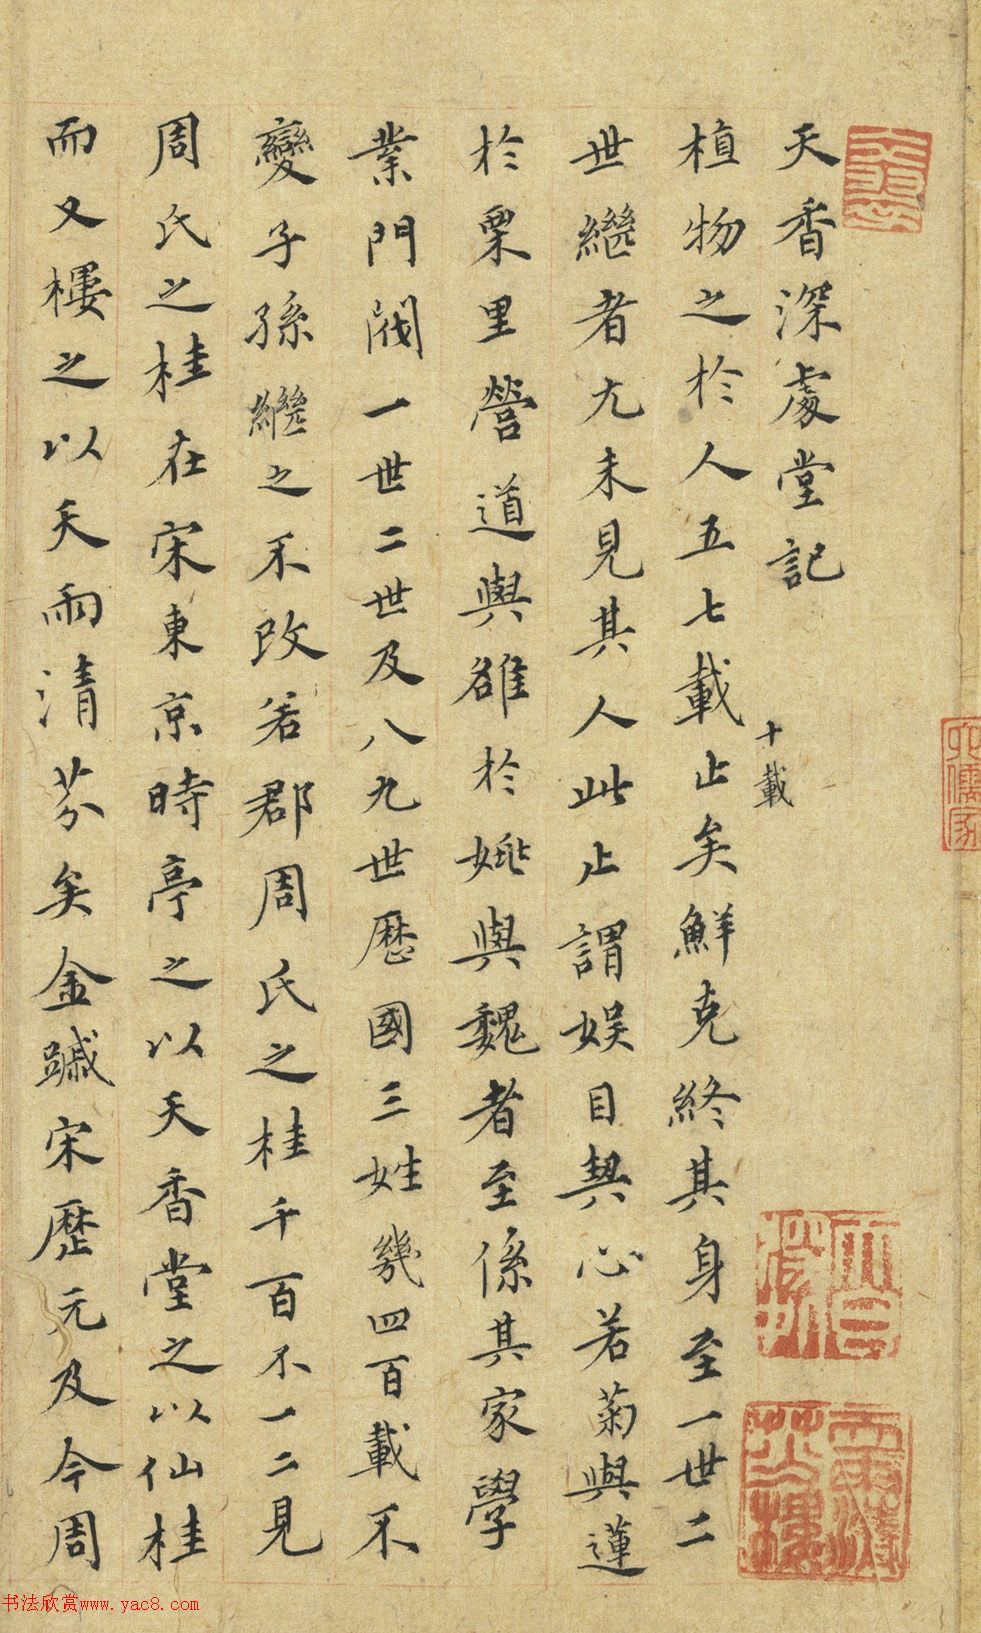 天香深處堂記
植物之於人五七載止矣鮮克終其身至一世二
十載
世繼者尤未見其人此止謂娛目契心若菊與蓮
於栗里營道與雒於姚與魏者至係其家學
業門閥一世二世及八九世歷國三姓幾四百載不
變子孫繼之不改若郡周氏之桂千百不一二見
周氏之桂在宋東京時亭之以天香堂之以仙桂
而又樓之以天雨清芬矣金蹴宋歷元及今周
六儒家
天雨清芬樓
书法欣赏www.yac8.com